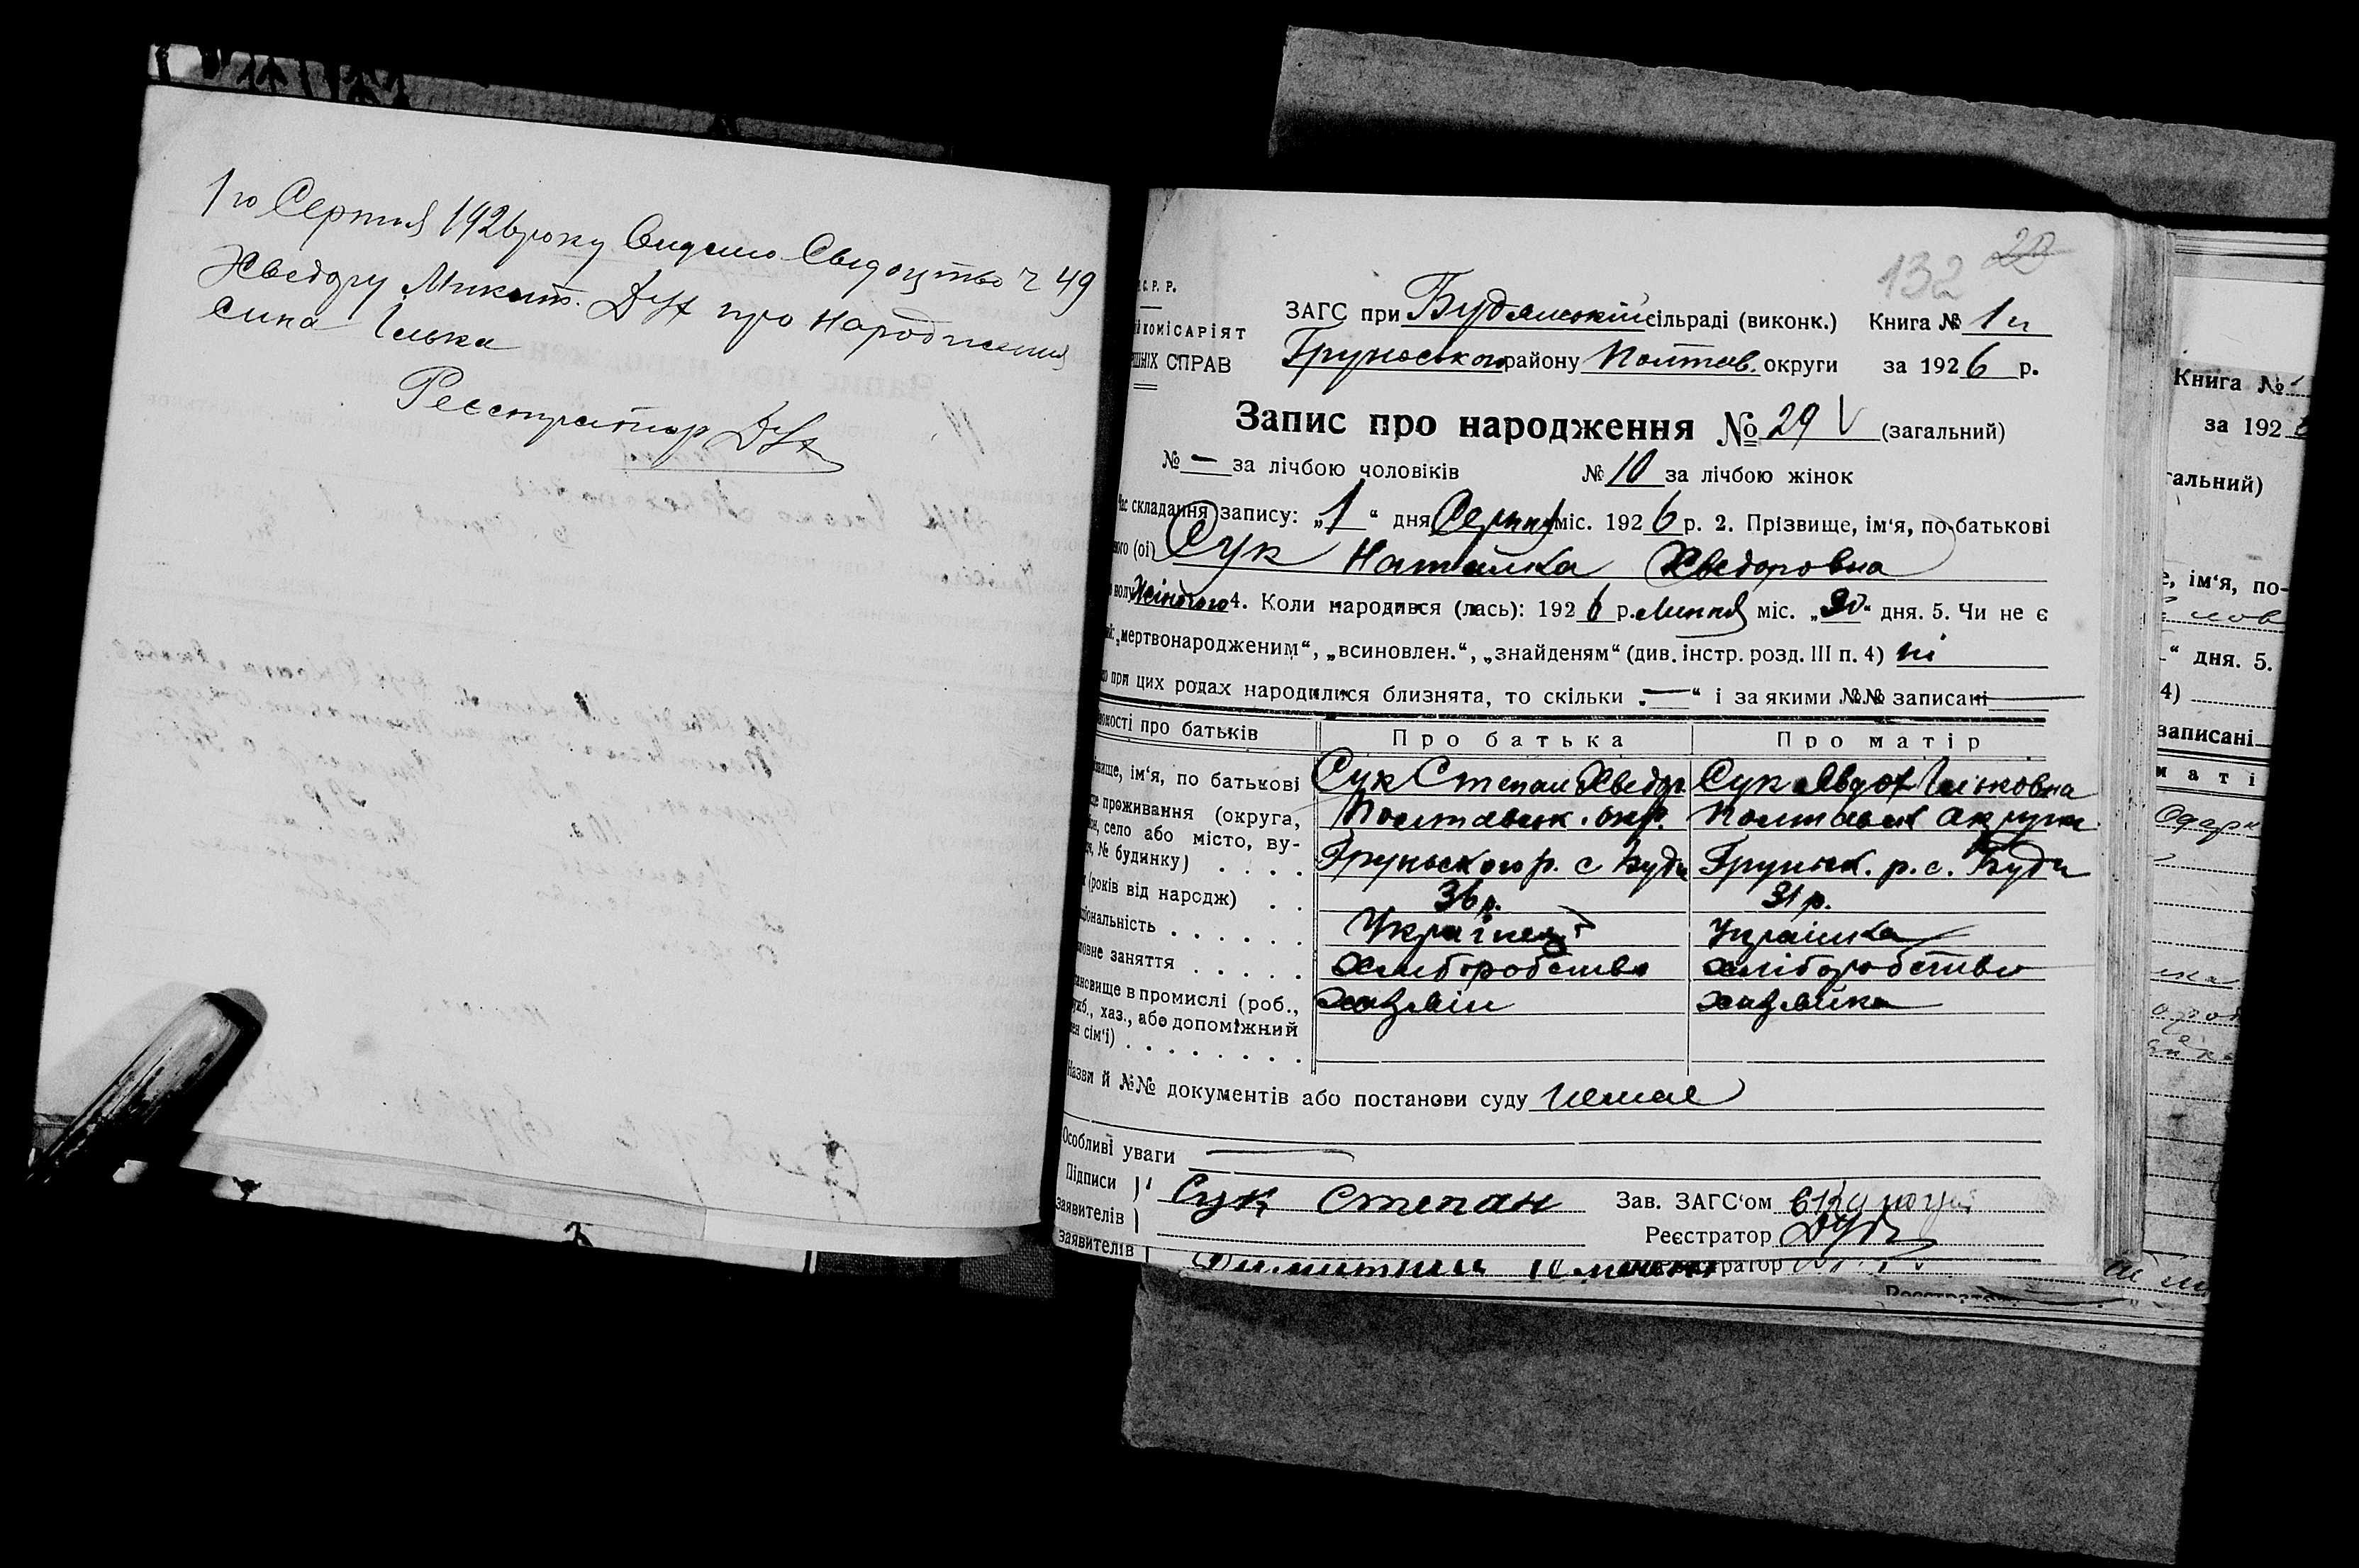 1го Серпня 1926 року Видано Свідоцтво Ч 49
Хведору Микит. Дуд про народження
сина Ілька
Реєстратор Дуд
132 28
С. Р. Р.
КОМІСАРІЯТ
ШНІХ СПРАВ
ЗАГС при Будянській сільраді (виконк.) Книга № 1н
Груньського району Полтав. округи за 1926 р.
Запис про народження № 29 V (загальний)
№ — за лічбою чоловіків № 10 за лічбою жінок
Час складання запису: „1“ дня Серпня міс. 1926 р. 2. Прізвище, ім‘я, по-батькові
ного (ої) Сук Наталка Хведоровна
полу Жіночого 4. Коли народився (лась): 1926 р. Липня міс. „30“ дня. 5. Чи не є
„мертвонародженим“, „всиновлен.“, „знайденям“ (див. інстр. розд. III п. 4) ні
що при цих родах народилися близнята, то скільки „—“ і за якими №№ записані —
омості про батьків Про батька Про матір
звище, ім‘я, по батькові Сук Степан Хведор Сук Явдот Ільковна
це проживання (округа, Полтавськ. окр. Полтавськ округи
он, село або місто, ву-
№ будинку) . . . . Груньского р. с Буди Груньськ. р. с. Буди
(років від народж) . . 36 р. 31 р.
ціональність . . . . . . Українец Українка
ловне заняття . . . . . хліборобство хліборобство
тановище в промислі (роб., хазяін хазяйка
ужб., хаз., або допоміжний
лен сім‘ї) . . . . . . . .
Назви й №№ документів або постанови суду Немає
Особливі уваги —
Підписи
заявителів Сук Степан Зав. ЗАГС‘ом
Реєстратор Дуд
заявителів
Реєстратор
Книга №
за 192
гальний)
е, ім‘я, по-
“ дня. 5.
4)
записані
м а т і
Одарк